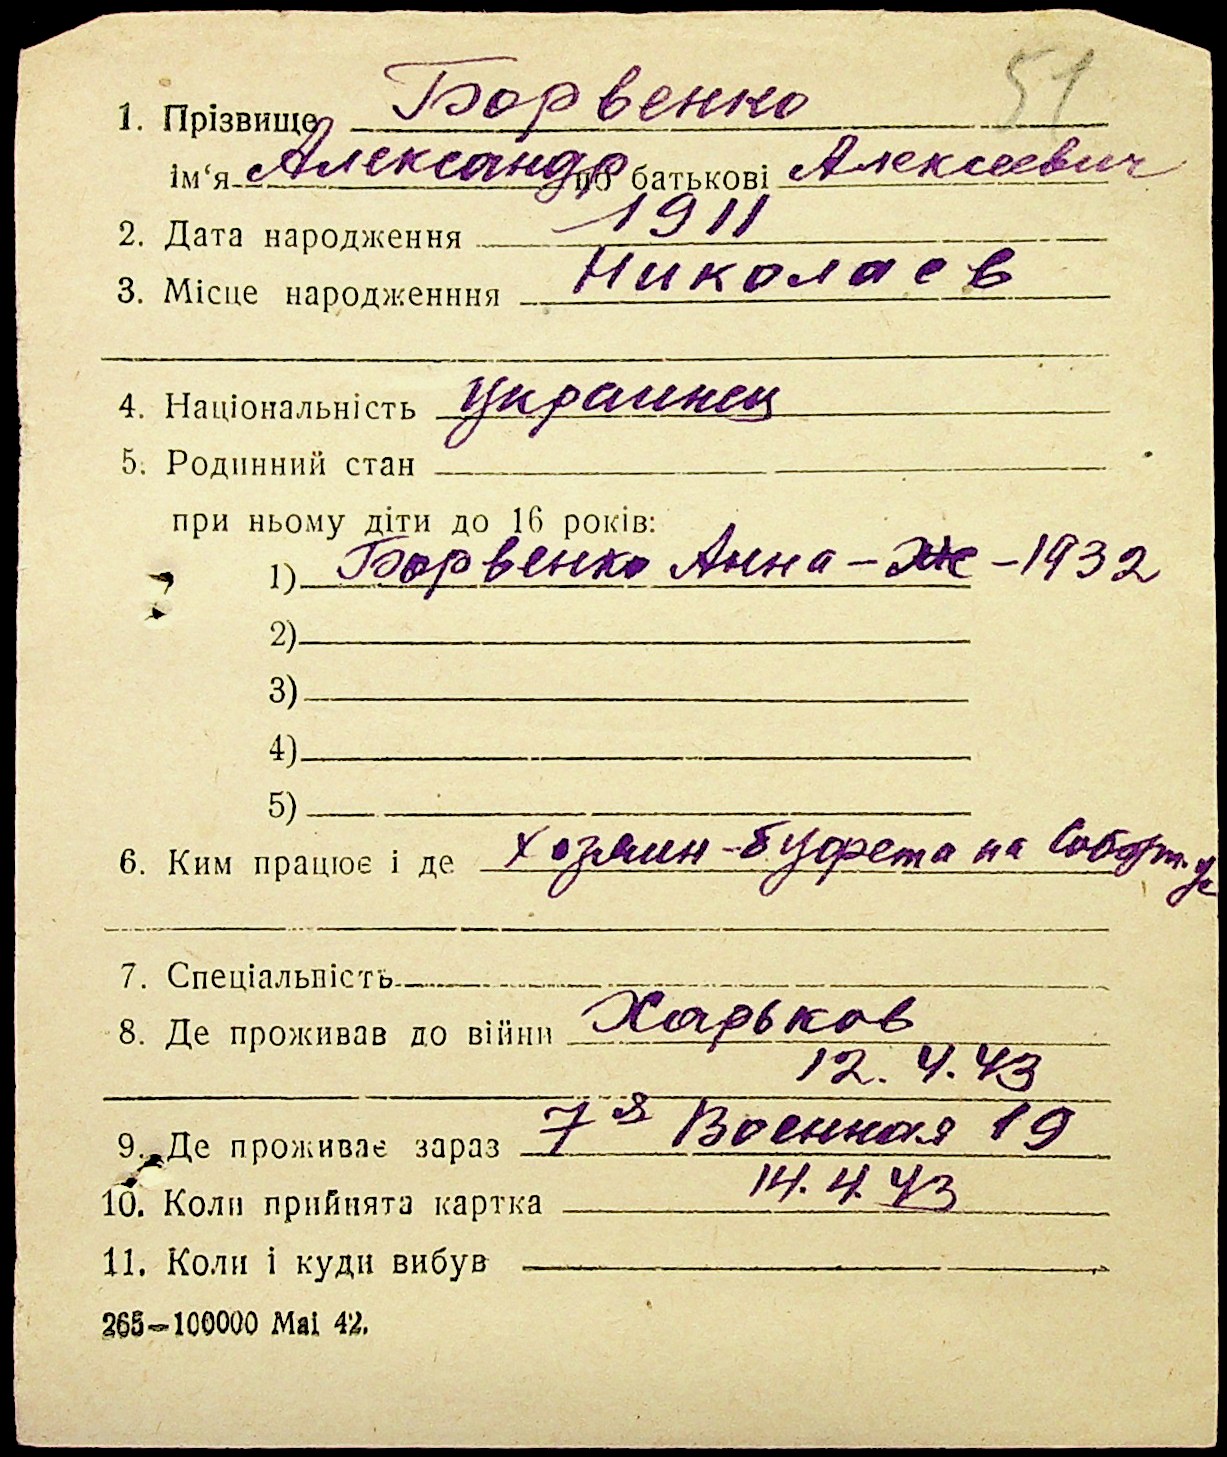 51
1. Прізвище Борвенко
ім‘я Александр по батькові Алексеевич
2. Дата народження 1911
3. Місце народженння Николаев
4. Національність украинец
5. Родинний стан
при ньому діти до 16 років:
1) Борвенко Анна – Ж – 1932
2)
3)
4)
5)
6. Ким працює і де хозяин-буфета на
7. Спеціальність
8. Де проживав до війни Харьков
12. 4. 43
9. Де проживає зараз 7я Военная 19
10. Коли прийнята картка 14. 4. 43
11. Коли і куди вибув
265—100000 Mai 42.